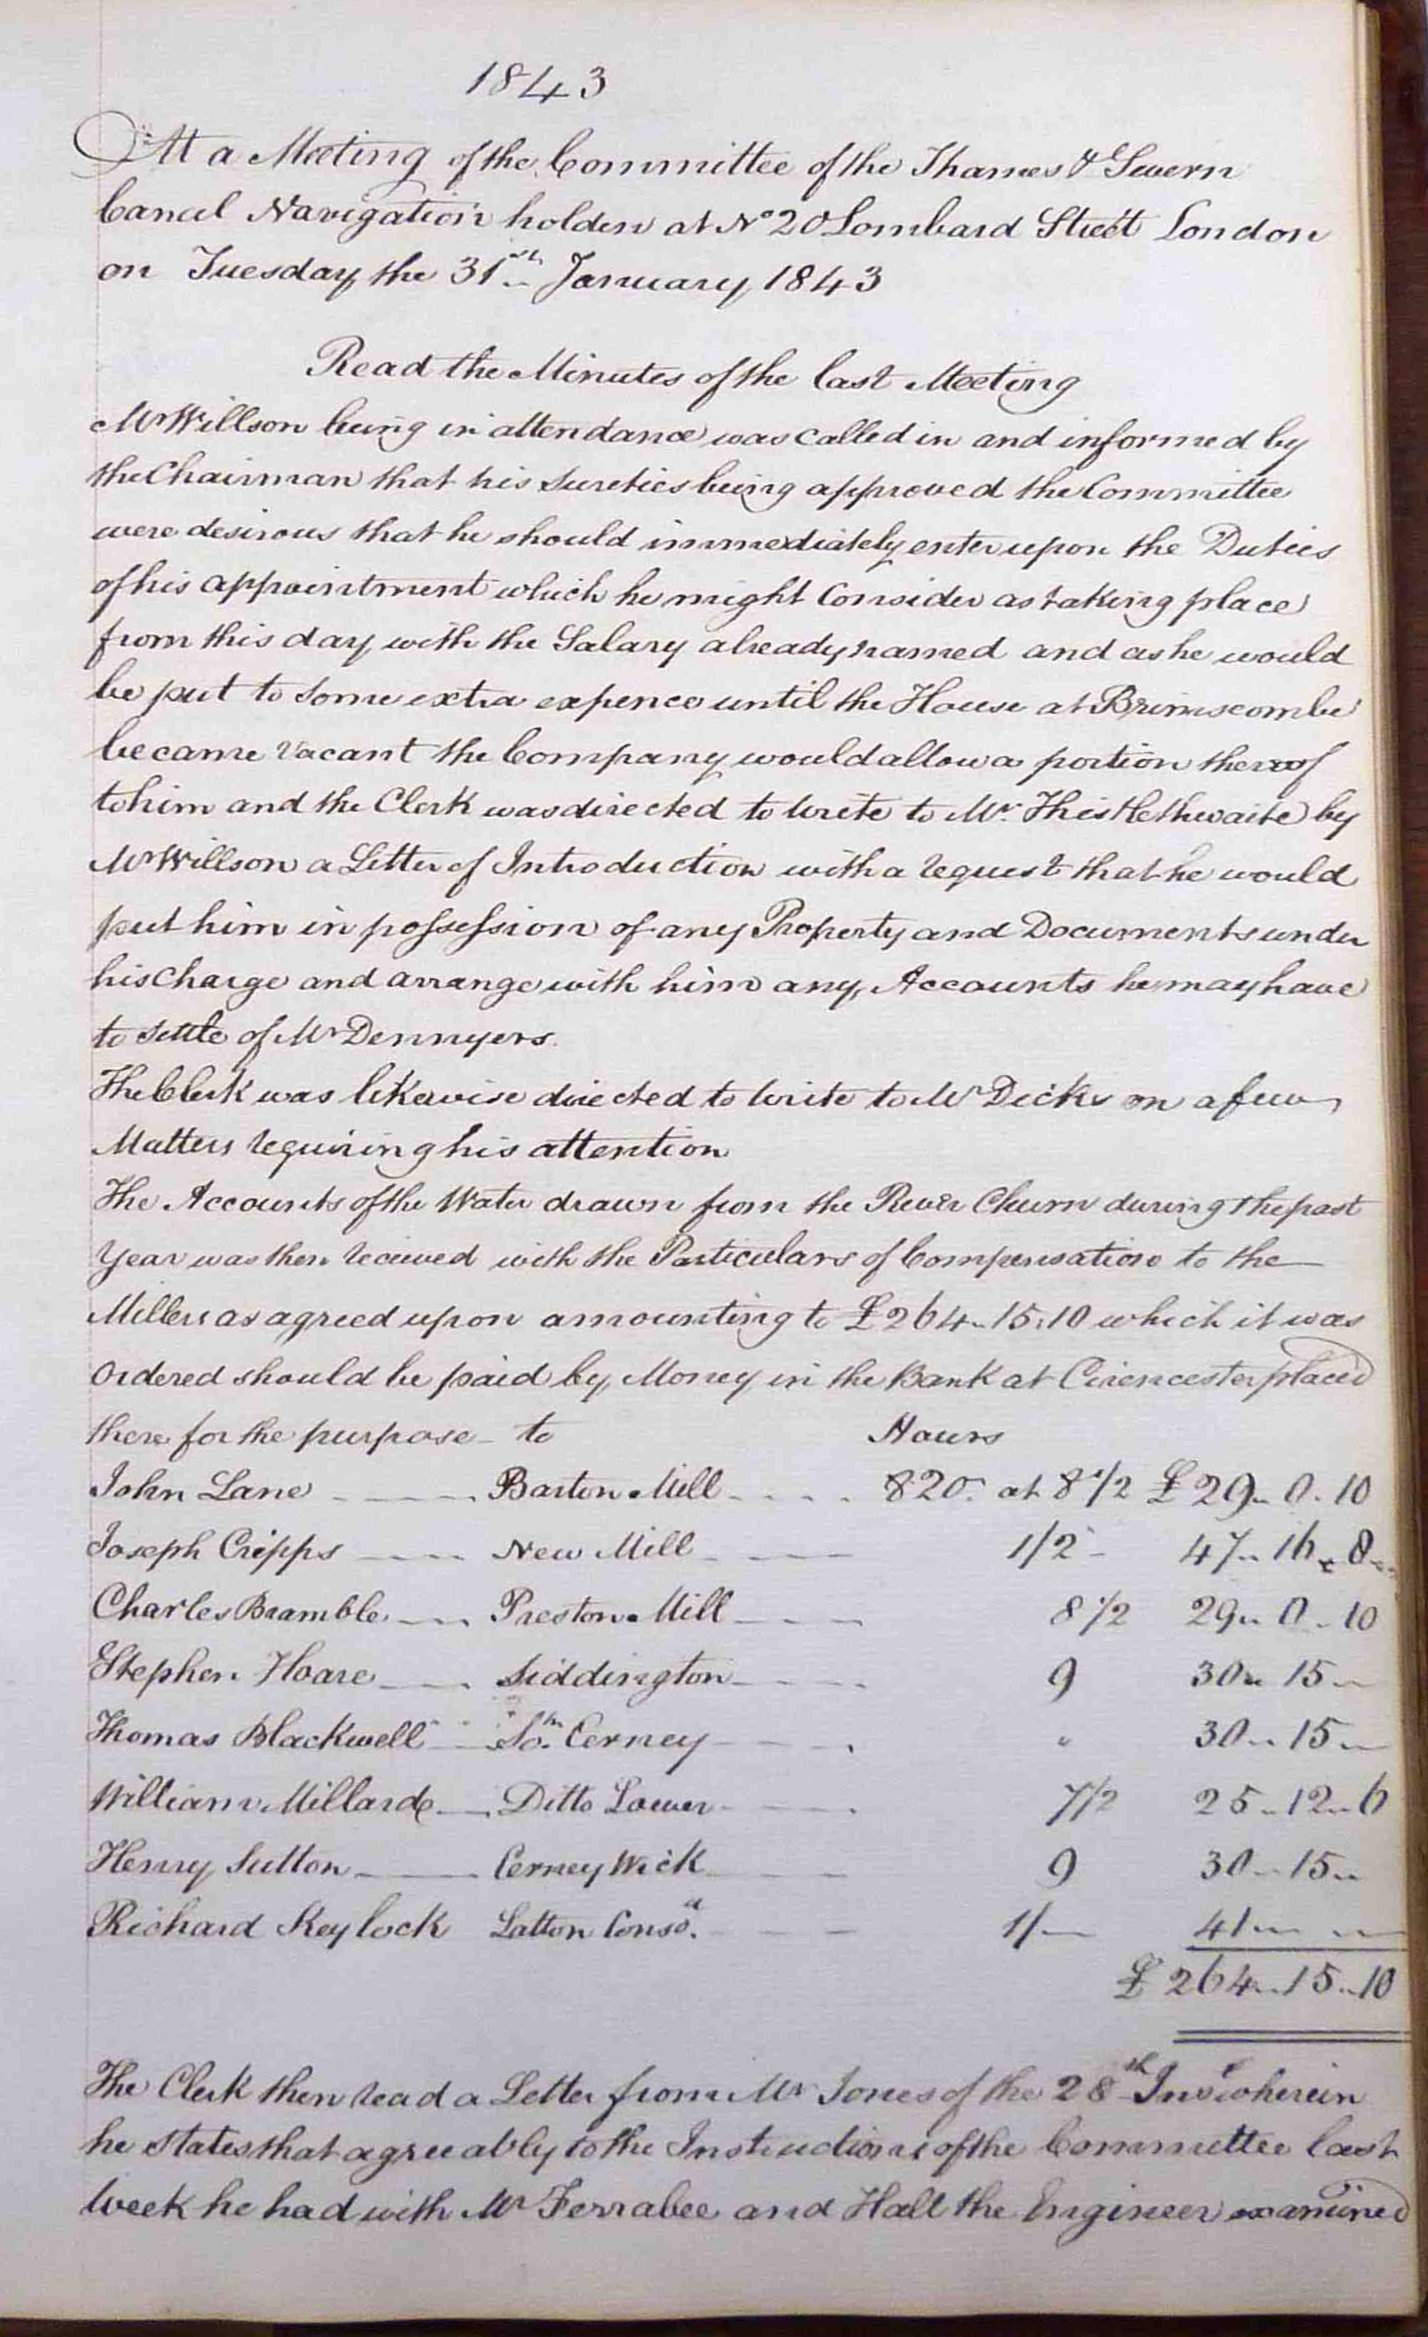 1843
At a Meeting of the Committee of the Thames & Severn
Canal Navigation holden at No 20 Lombard Street London
on Tuesday the 31st January 1843
Read the Minutes of the last Meeting
Mr Willson being in attendance was called in and informed by
the Chairman that his Sureties being approved the Committee
were desirous that he should immediately enter upon the Duties
of his appointment which he might Consider as taking place
from this day with the Salary already named and as he would
be put to Some extra expence until the House at Brimscombe
became Vacant the Company would allow a portion thereof
to him and the Clerk was directed to write to Mr. Thistlethwaite by
Mr Willson a Letter of Introduction with a request that he would
put him in possession of any Property and Documents under
his Charge and arrange with him any Accounts he may have
to Settle of Mr Dennyers.
The Clerk was likewise directed to write to Mr Dicks on a few
Matters requiring his attention
The Accounts of the Water drawn from the River Churn during the past
Year was then received with the Particulars of Compensation to the
Millers as agreed upon amounting to £264.15.10 which it was
Ordered should be paid by Money in the Bank at Cirencester placed
there for the purpose - to Hours
John Lane Barton Mill 820 at 8 1/2 £29. 0. 10
Joseph Cripps New Mill 1/2 47. 16. 8
Charles Bramble Preston Mill 8 1/2 29. 0. 10
Stephen Hoare Siddington 9 30. 15 -
Thomas Blackwell So. Cerney " 30. 15 -
William Millard Ditto Lower 7 1/2 25. 12. 6
Henry Sutton Cerney Wick 9 30. 15 -
Richard Keylock Latton Consd. 1/- 41. - -
£264. 15. 10
The Clerk then read a Letter from Mr Jones of the 28th Inst wherein
he states that agreeably to the Instructions of the Committee last
Week he had with Mr Ferrabee and Hall the Engineer examined